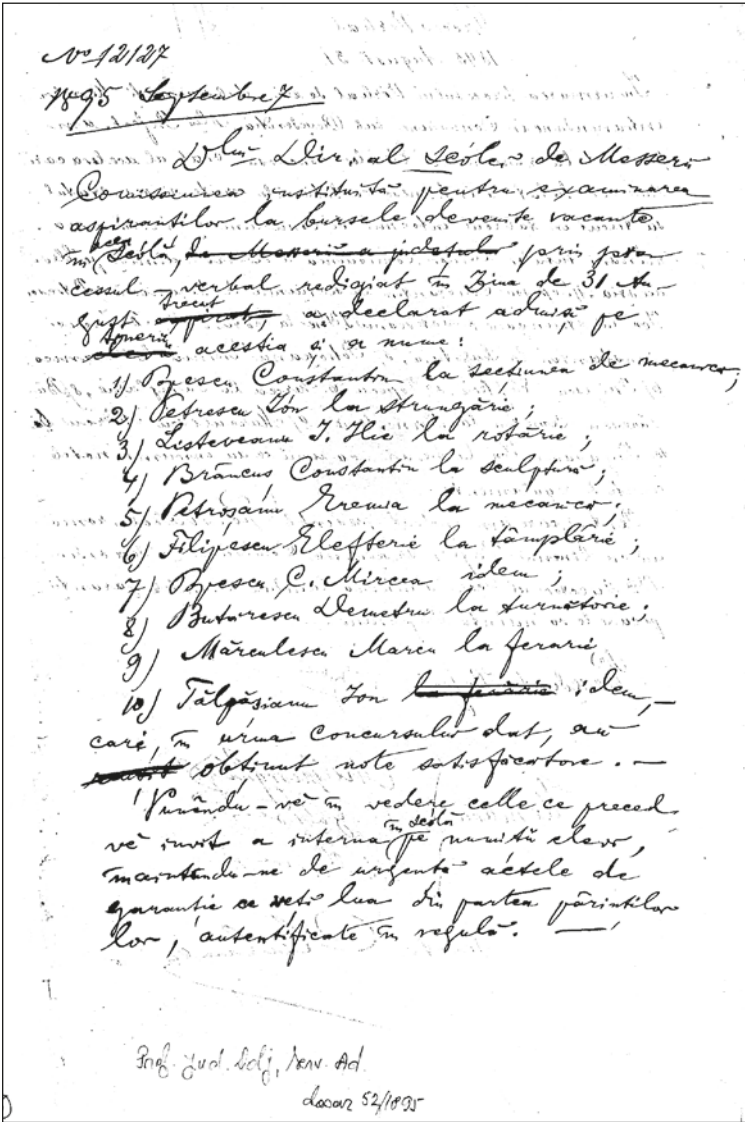 No 12127
1895 Septembre 7
Dlui Dir. al Scólei de Messerii
Comissiunea instituită pentru examinarea
aspirantilor la bursele devenite vacante
în acea Scólă, de Messerii a județului prin pro-
cesul-verbal redigiat în Ziua de 31 Au-
gust expirat, trecut a declarat admisi pe
elevii tinerii acestia și a nume:
1) Constantin la sectiunea de mecanica;
2) Petrescu Ión la strungărie;
3) Listeveanu I. Ilie la rotărie;
4) Brâncuș Constantin la sculptură;
5) Petroșanu Eremia la mecanica;
6) Filipescu Elefterie la tâmplărie;
7) C. Mircea idem;
8) Demetru la turnătorie;
9) Mărculescu Marcu la ferarie
10) Tălpășianu Ion la ferărie idem, —
cari, în urma concursului dat, au
obtinut note satisfăcatore. —
Punându-vĕ în vedere celle ce preced
vĕ invit a interna în scólă pe numitii elevi,
inaintându-ne de urgentă actele de
garantie ce veti lua din partea părintilor
lor, autentificate în regulă. —
Pref. Jud. Dolj, Serv. Ad.
dosar 52/1895